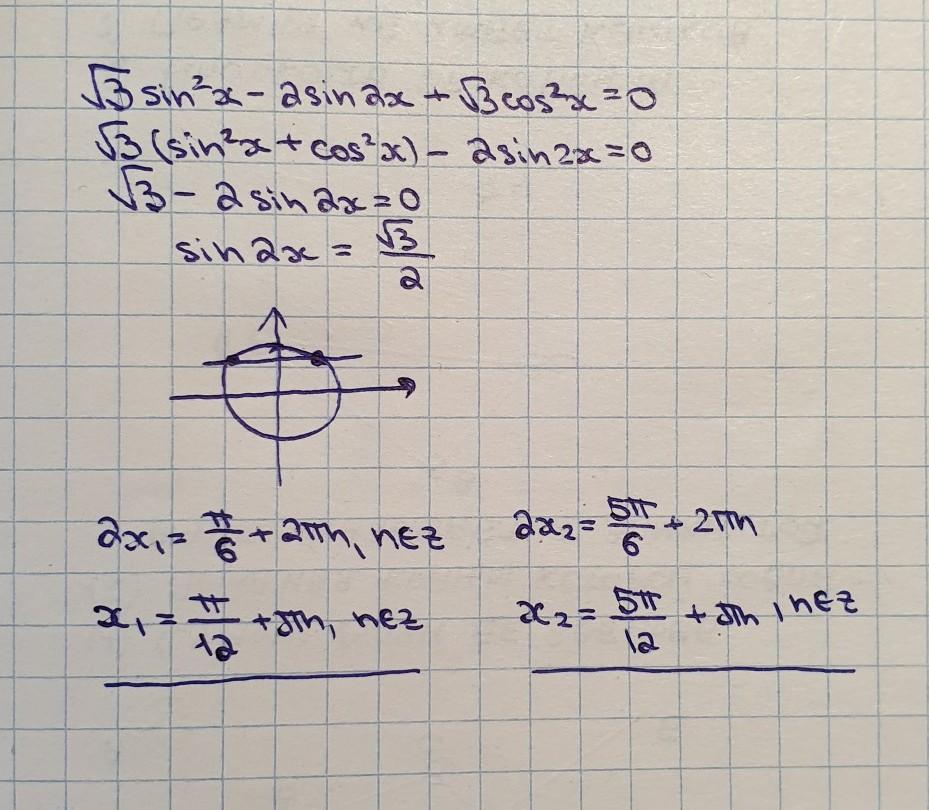 √3 sin²x - 2sin2x + √3cos²x = 0
√3 (sin²x + cos²x) - 2sin2x = 0
√3 - 2sin2x = 0
sin2x = √3/2
2x₁ = π/6 + 2πn, n∈Z
2x₂ = 5π/6 + 2πn
x₁ = π/12 + πn, n∈Z
x₂ = 5π/12 + πn, n∈Z